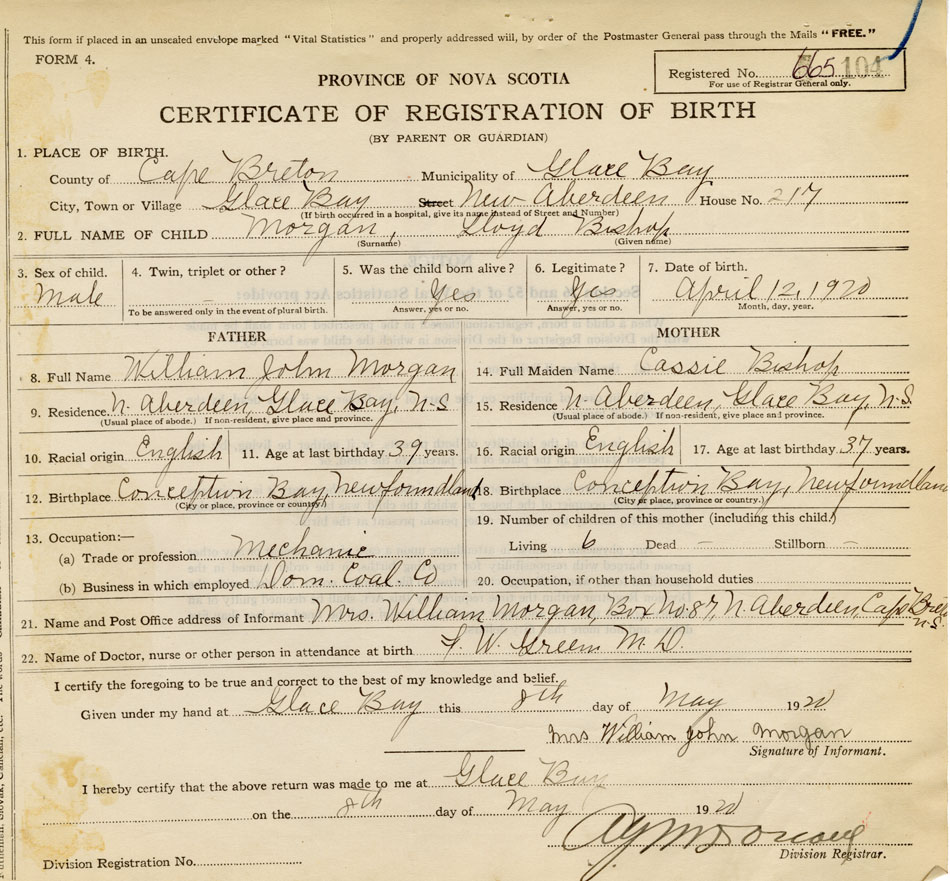 This form if placed in an unsealed envelope marked "Vital Statistics" and properly addressed will, by order of the Postmaster General pass through the Mails "FREE."
FORM 4.
Registered No. 665 104
For use of Registrar General only.
PROVINCE OF NOVA SCOTIA
CERTIFICATE OF REGISTRATION OF BIRTH
(BY PARENT OR GUARDIAN)
1. PLACE OF BIRTH.
County of Cape Breton Municipality of Glace Bay
City, Town or Village Glace Bay Street New Aberdeen House No. 217
(If birth occurred in a hospital, give its name instead of Street and Number)
2. FULL NAME OF CHILD Morgan, Lloyd Bishop
(Surname) (Given name)
3. Sex of child. 4. Twin, triplet or other? 5. Was the child born alive? 6. Legitimate? 7. Date of birth.
Male — Yes Yes April 12, 1920
To be answered only in the event of plural birth. Answer, yes or no. Answer, yes or no. Month, day, year.
FATHER MOTHER
8. Full Name William John Morgan 14. Full Maiden Name Cassie Bishop
9. Residence. N. Aberdeen, Glace Bay, N-S 15. Residence N. Aberdeen, Glace Bay, N.S.
(Usual place of abode.) If non-resident, give place and province. (Usual place of abode.) If non-resident, give place and province.
10. Racial origin English 11. Age at last birthday 39 years. 16. Racial origin English 17. Age at last birthday 37 years.
12. Birthplace Conception Bay, Newfoundland 18. Birthplace Conception Bay, Newfoundland
(City or place, province or country.) (City or place, province or country.)
13. Occupation:— 19. Number of children of this mother (including this child.)
(a) Trade or profession Mechanic Living 6 Dead — Stillborn —
(b) Business in which employed Dom. Coal. Co 20. Occupation, if other than household duties
21. Name and Post Office address of Informant Mrs. William Morgan, Box No. 87, N. Aberdeen, Cape Bre N.S.
22. Name of Doctor, nurse or other person in attendance at birth W. Green M.D.
I certify the foregoing to be true and correct to the best of my knowledge and belief.
Given under my hand at Glace Bay this 8th day of May 1920
Mrs William John Morgan
Signature of Informant.
I hereby certify that the above return was made to me at Glace Bay
on the 8th day of May 1920
Division Registrar.
Division Registration No.